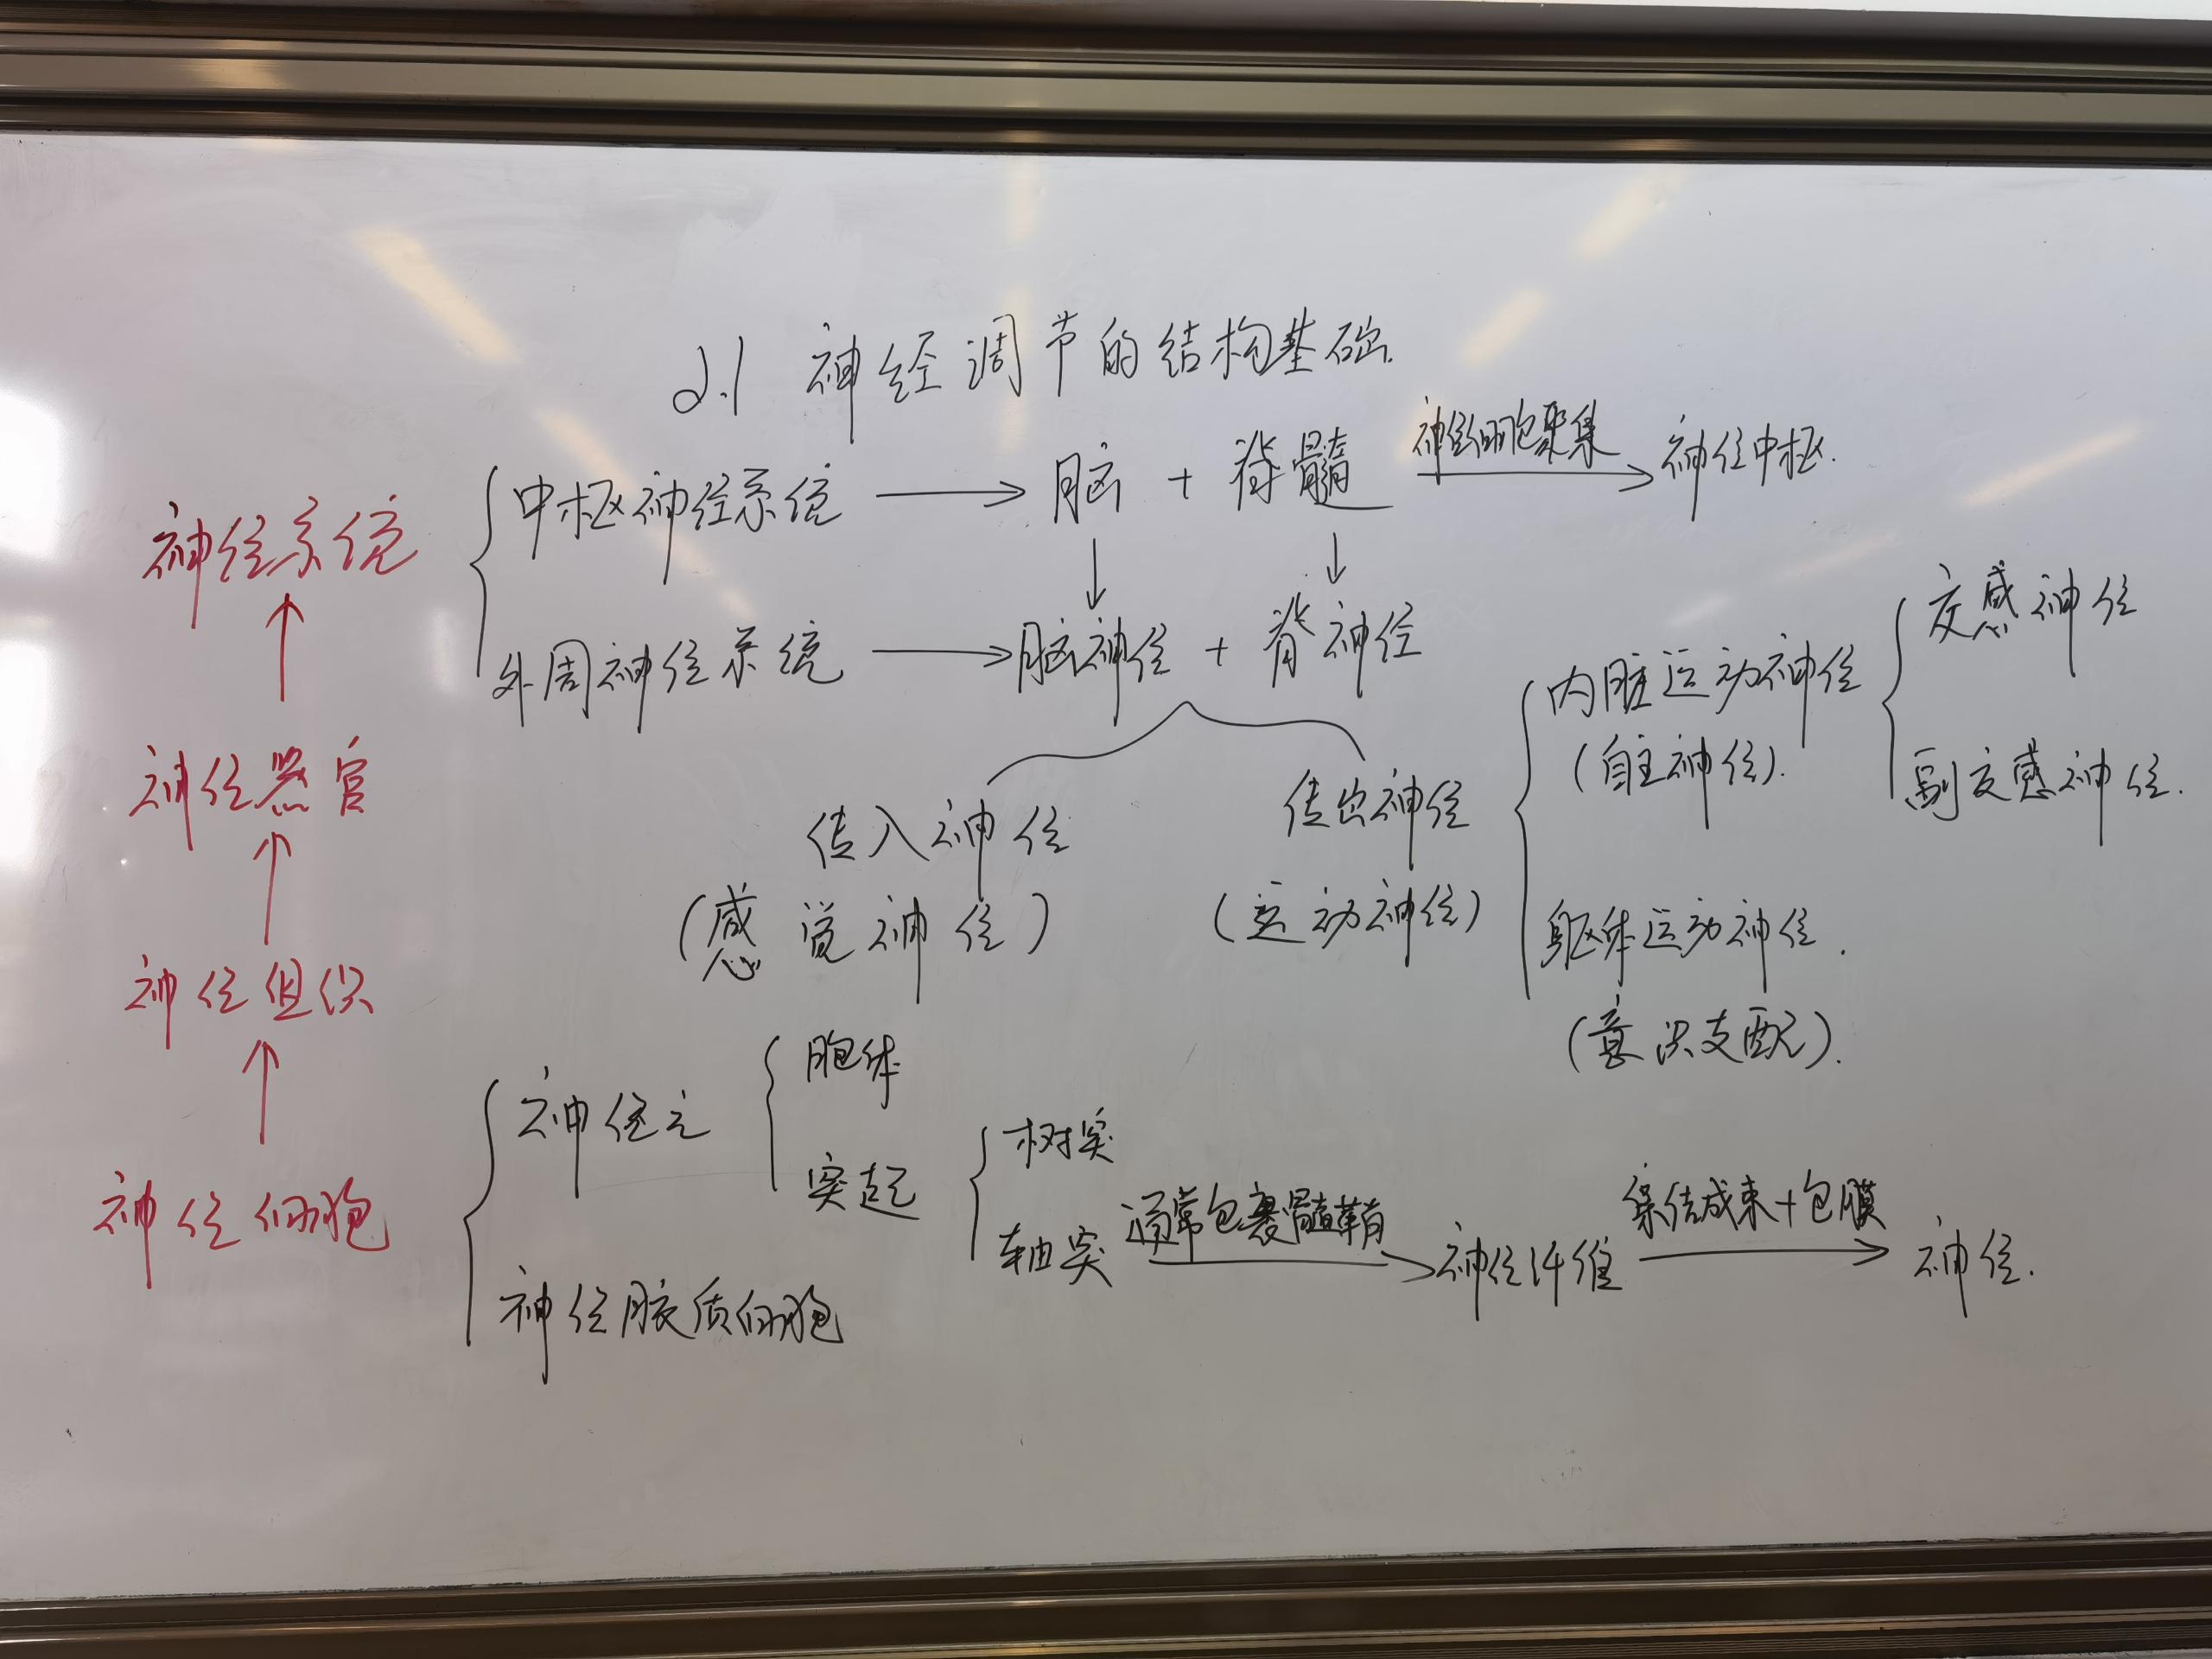 2.1 神经调节的结构基础.
神经系统
中枢神经系统 → 脑 + 脊髓 神经细胞聚集 → 神经中枢.
↓ ↓
外周神经系统 → 脑神经 + 脊神经
传入神经
(感觉神经)
传出神经
(运动神经)
内脏运动神经
(自主神经).
交感神经
副交感神经.
躯体运动神经.
(意识支配).
↑
神经器官
↑
神经组织
↑
神经细胞
神经元
胞体
突起
树突
轴突 通常包裹髓鞘 → 神经纤维 集结成束+包膜 → 神经.
神经胶质细胞